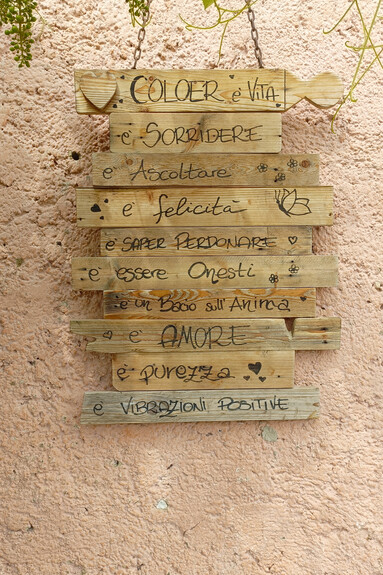 COLOER è VITA
è SORRIDERE
è Ascoltare
è felicità
è SAPER PERDONARE
è essere Onesti
è un Bacio sull'Anima
è AMORE
è purezza
è VIBRAZIONI POSITIVE